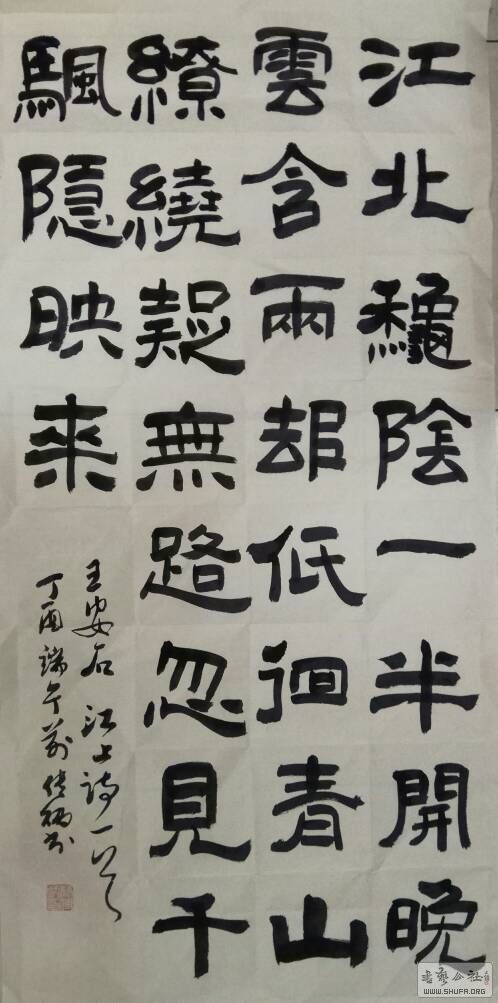 江北龝陰一半開晚
雲含雨却低徊青山
繚繞疑無路忽見千
颿隱映来
王安石江上詩一首
丁酉端午
書藝公社
WWW.SHUFA.ORG